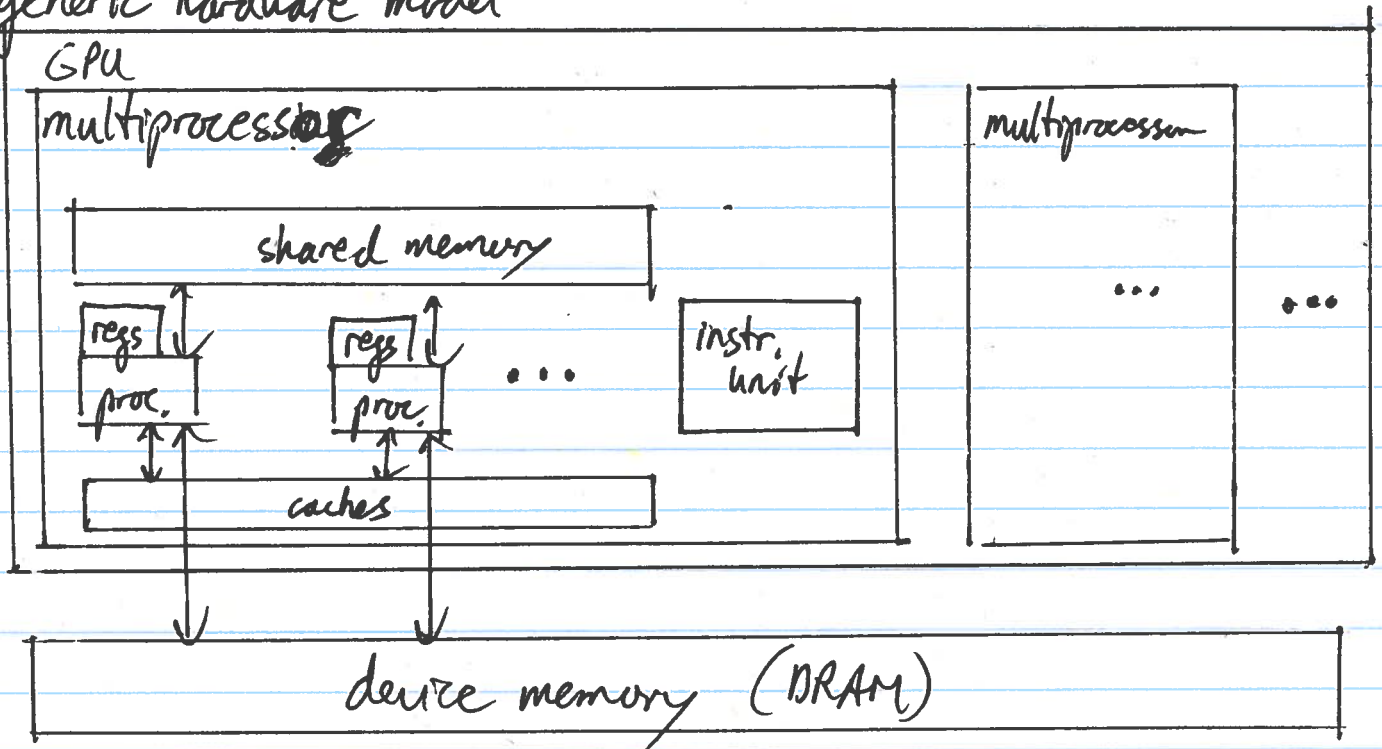 generic hardware model
GPU
multiprocessor
multiprocessor
shared memory
regs
regs
instr.
unit
...
...
...
proc.
proc.
caches
device memory (DRAM)